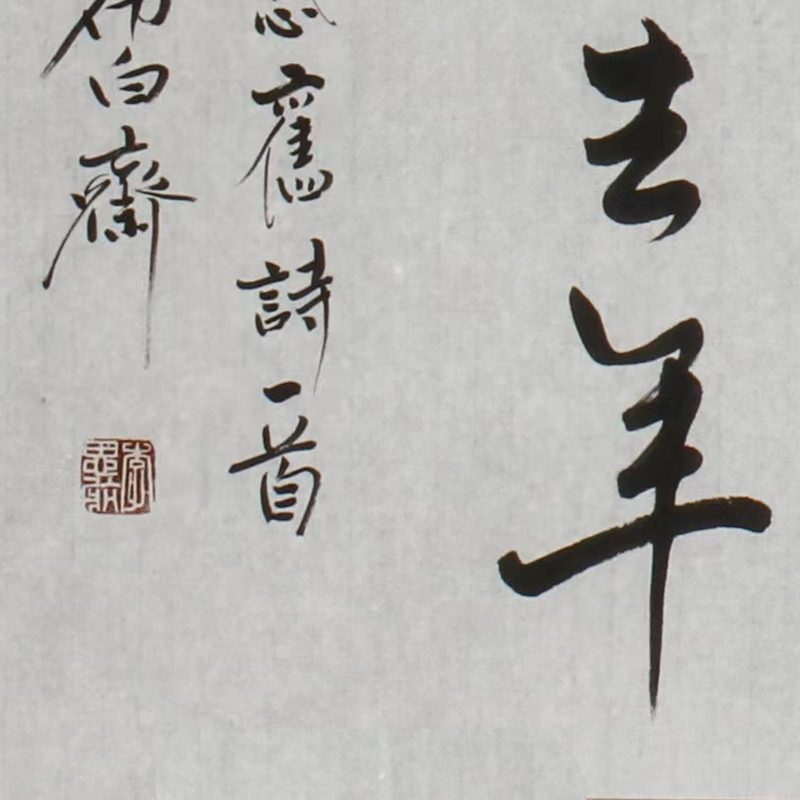 去年
舊詩一首
白齋